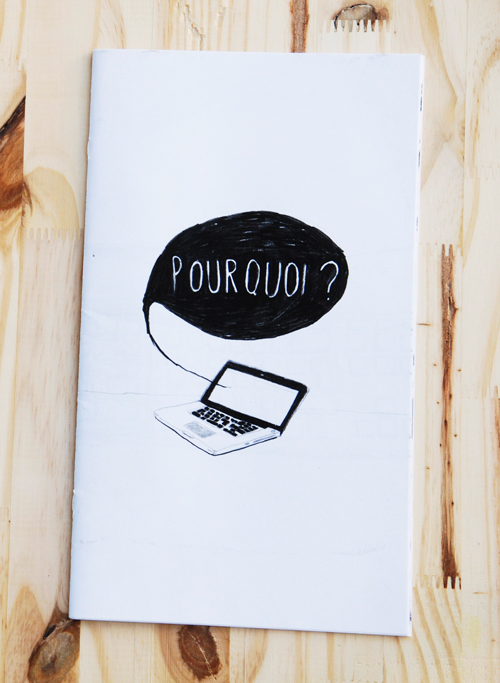 POURQUOI ?